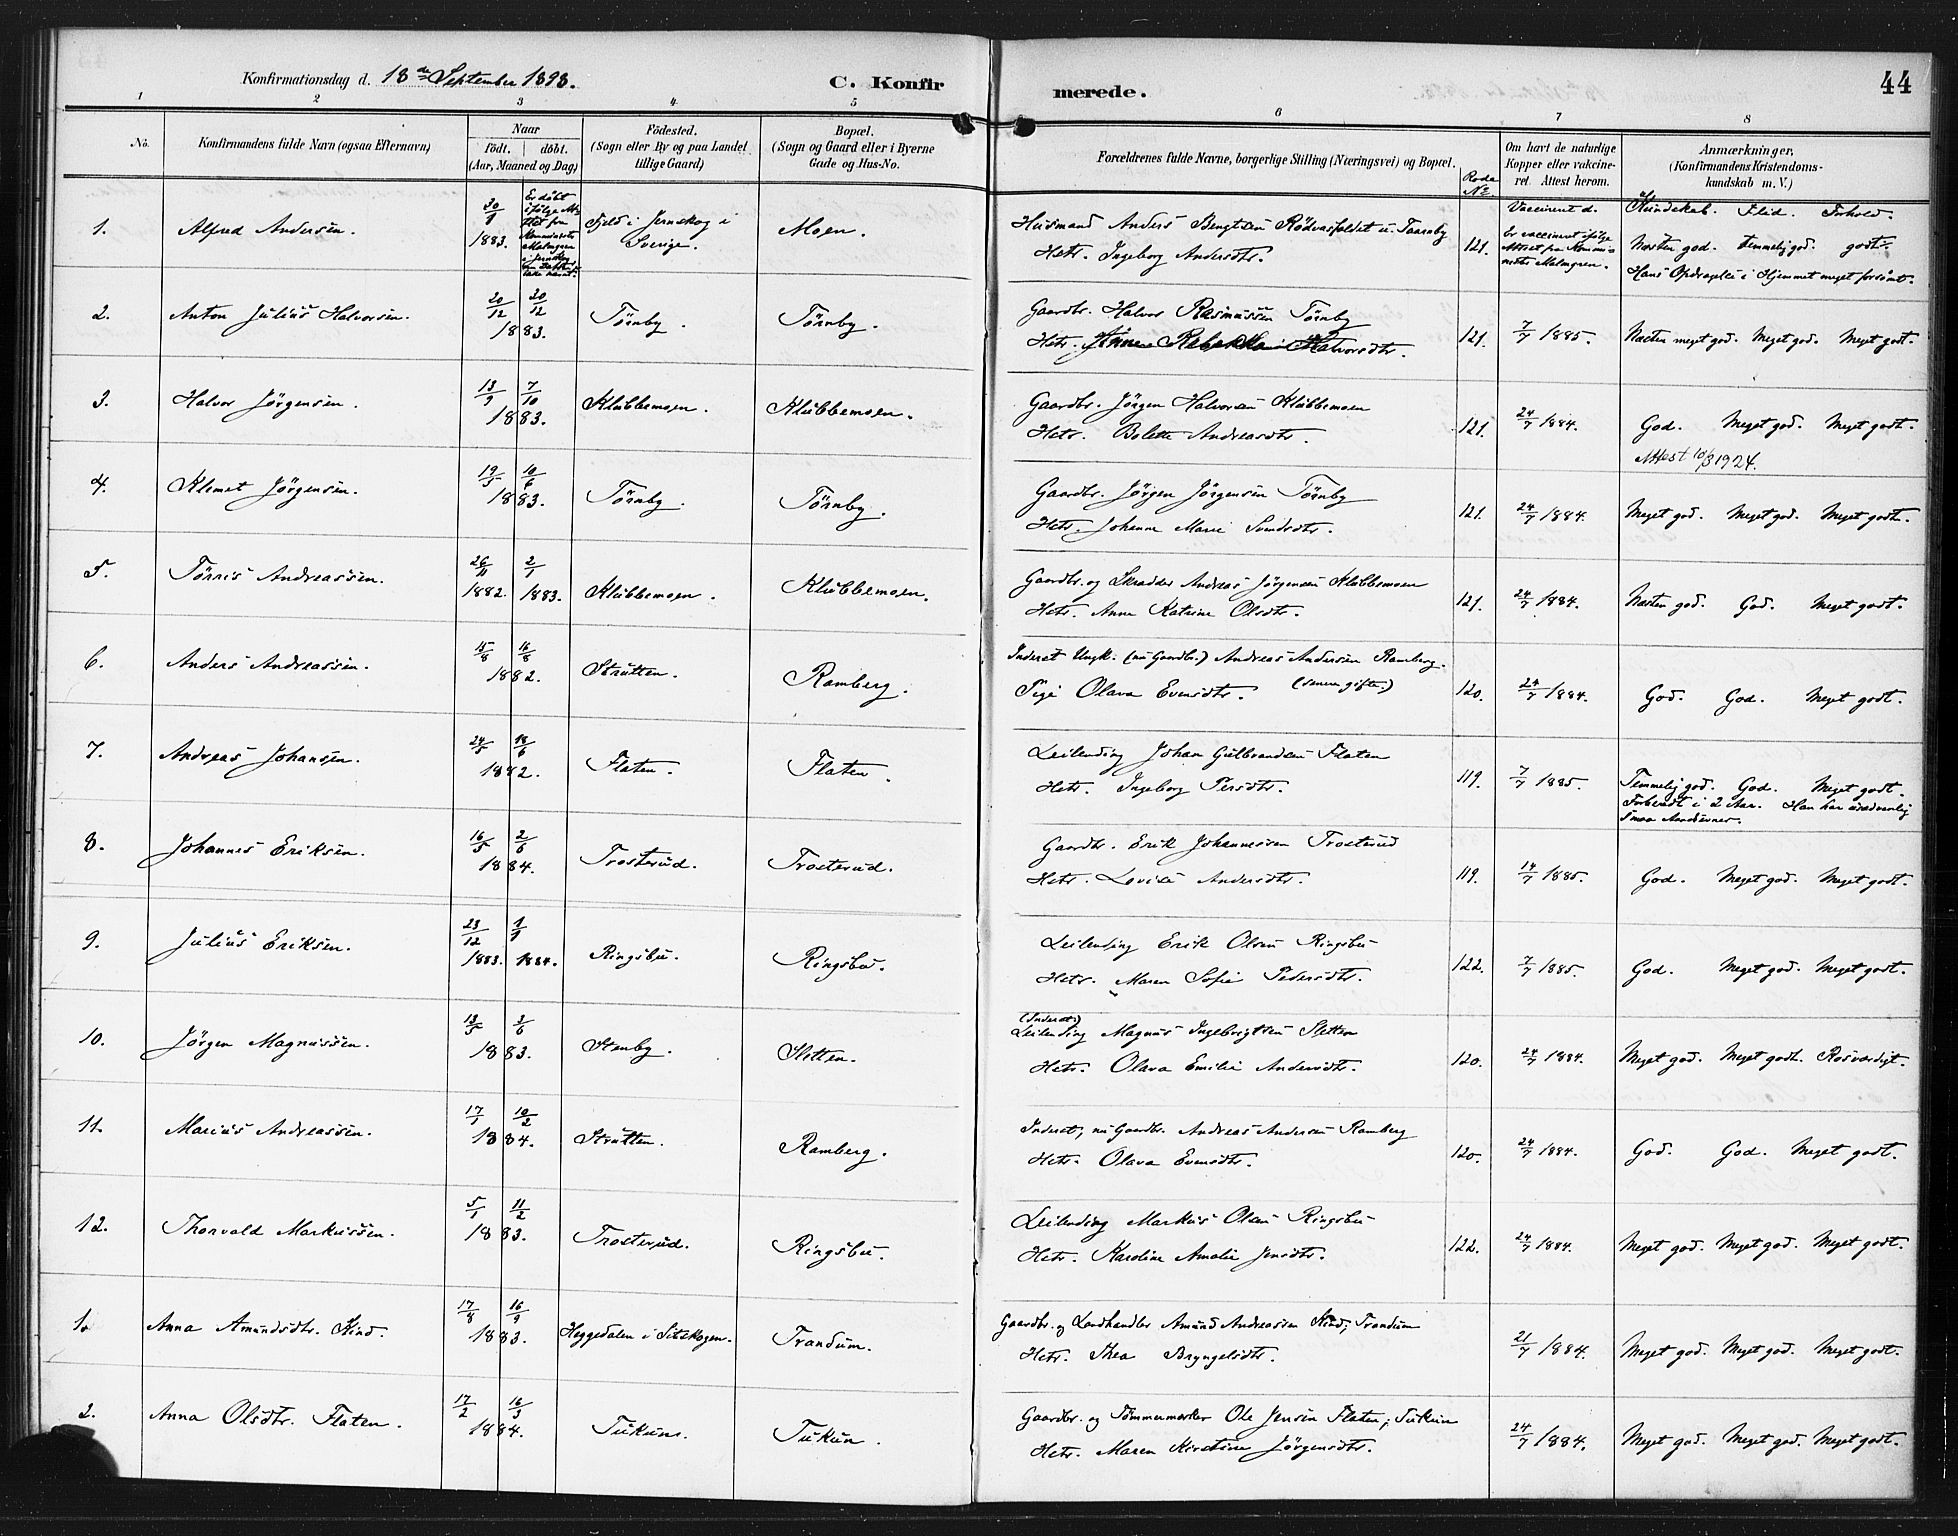 Konfirmationsdag d. 18de September 1898.
C. Konfirmerede.
44
1 2 3 4 5 6 7 8
No.
Konfirmandens fulde Navn (ogsaa Efternavn)
Naar
født. | døbt.
(Aar, Maaned og Dag)
Fødested.
(Sogn eller By og paa Landet
tillige Gaard)
Bopæl.
(Sogn og Gaard eller i Byerne
Gade og Hus-No.
Forældrenes fulde Navne, borgerlige Stilling (Næringsvei) og Bopæl.
Rode
No.
Om havt de naturlige
Kopper eller vakcine-
ret. Attest herom.
Anmærkninger,
(Konfirmandens Kristendoms-
kundskab m. V.)
Vaccineret d. Kundskab. Flid. Forhold.
1. Alfred Andersen. 30/1 1883. Er døbt ifølge Attest fra Malmgren i Jernskog
Fjeld i Jernskog i Sverige. Moen.
Husmand Anders Bengtsen Taarnby
Hstr. Ingeborg Andersdtr. 121. Er vaccineret ifølge Attest fra Malmgren. Næsten god. Temmelig god. godt.
Hans Opdragelse i Hjemmet meget forsømt.
2. Anton Julius Halvorsen. 20/12 30/12 1883. Törnby. Törnby.
Gaardbr. Halvor Rasmussen Törnby
Hstr. Halvorsdtr. 121. 7/7 1885. Næsten meget god. Meget god. Meget godt.
3. Halvor Jörgensen. 13/9 7/10 1883. Klübbemoen. Klübbemoen.
Gaardbr. Jörgen Halvorsen Klübbemoen
Hstr. Bolette Andreasdtr. 121. 24/7 1884. God. Meget god. Meget godt.
Attest 10/3 1924.
4. Klemet Jörgensen. 19/5 10/6 1883. Törnby. Törnby.
Gaardbr. Jörgen Jörgensen Törnby
Hstr. Johanne Marie Svendsdtr. 121. 24/7 1884. Meget god. Meget god. Meget godt.
5. Törris Andreassen. 26/11 1882. 2/1 1883. Klübbemoen. Klübbemoen.
Gaardbr. og Skrædder Andreas Jörgensen Klübbemoen
Hstr. Anne Katrine Olsdtr. 121. 24/7 1884. Næsten god. God. Meget godt.
6. Anders Andreassen. 15/8 1882. Strütten. Ramberg.
Inderst Ungk. (nu Gaardbr.) Andreas Andersen Ramberg.
Pige Olava Evensdtr. (senere gifte.) 120. 24/7 1884. God. God. Meget godt.
7. Andreas Johansen. 24/5 18/6 1882. Flaten. Flaten.
Leilending Johan Gulbrandsen Flaten
Hstr. Ingeborg Persdtr. 119. 7/7 1885. Temmelig god. God. Meget godt.
Forberedt i 2 Aar. Han har usædvanlig
smaa Aandsevner.
8. Johannes Eriksen. 16/5 2/6 1884. Trosterud. Trosterud.
Gaardbr. Erik Johannessen Trosterud
Hstr. Lovise Andersdtr. 119. 14/7 1885. God. Meget god. Meget godt.
9. Julius Eriksen. 23/12 1883. 1/1 1884. Ringsbu. Ringsbu.
Leilending Erik Olsen Ringsbu
Hstr. Maren Sofie Pedersdtr. 122. 7/7 1885. God. Meget god. Meget godt.
10. Jörgen Magnussen. 13/5 3/6 1883. Stenby. Sletten.
(Inderst.)
Leilending Magnus Ingebrigtsen Sletten
Hstr. Olava Emilie Andersdtr. 120. 24/7 1884. Meget god. Meget godt. Rosværdigt.
11. Marius Andreassen. 17/1 10/2 1884. Strütten. Ramberg.
Inderst, nu Gaardbr. Andreas Andersen Ramberg
Hstr. Olava Evensdtr. 120. 24/7 1884. God. God. Meget godt.
12. Thorvald Markussen. 5/1 11/2 1883. Trosterud. Ringsbu.
Leilending Markus Olsen Ringsbu
Hstr. Karoline Amalie Jensdtr. 122. 24/7 1884. Meget god. Meget god. Meget godt.
1. Anna Amundsdtr. Kind. 17/8 16/9 1883. Heggedalen i Setskogen. Trandum.
Gaardbr. og Landhandler Amund Andreassen Kind, Trandum
Hstr. Thea Bryngelsdtr. 21/7 1884. Meget god. Meget god. Meget godt.
2. Anna Olsdtr. Flaten. 17/2 16/3 1884. Tukun. Tukun.
Gaardbr. og Tömmermærker Ole Jensen Flaten, Tukun
Hstr. Maren Kirstine Jörgensdtr. 24/7 1884. Meget god. Meget god. Meget godt.